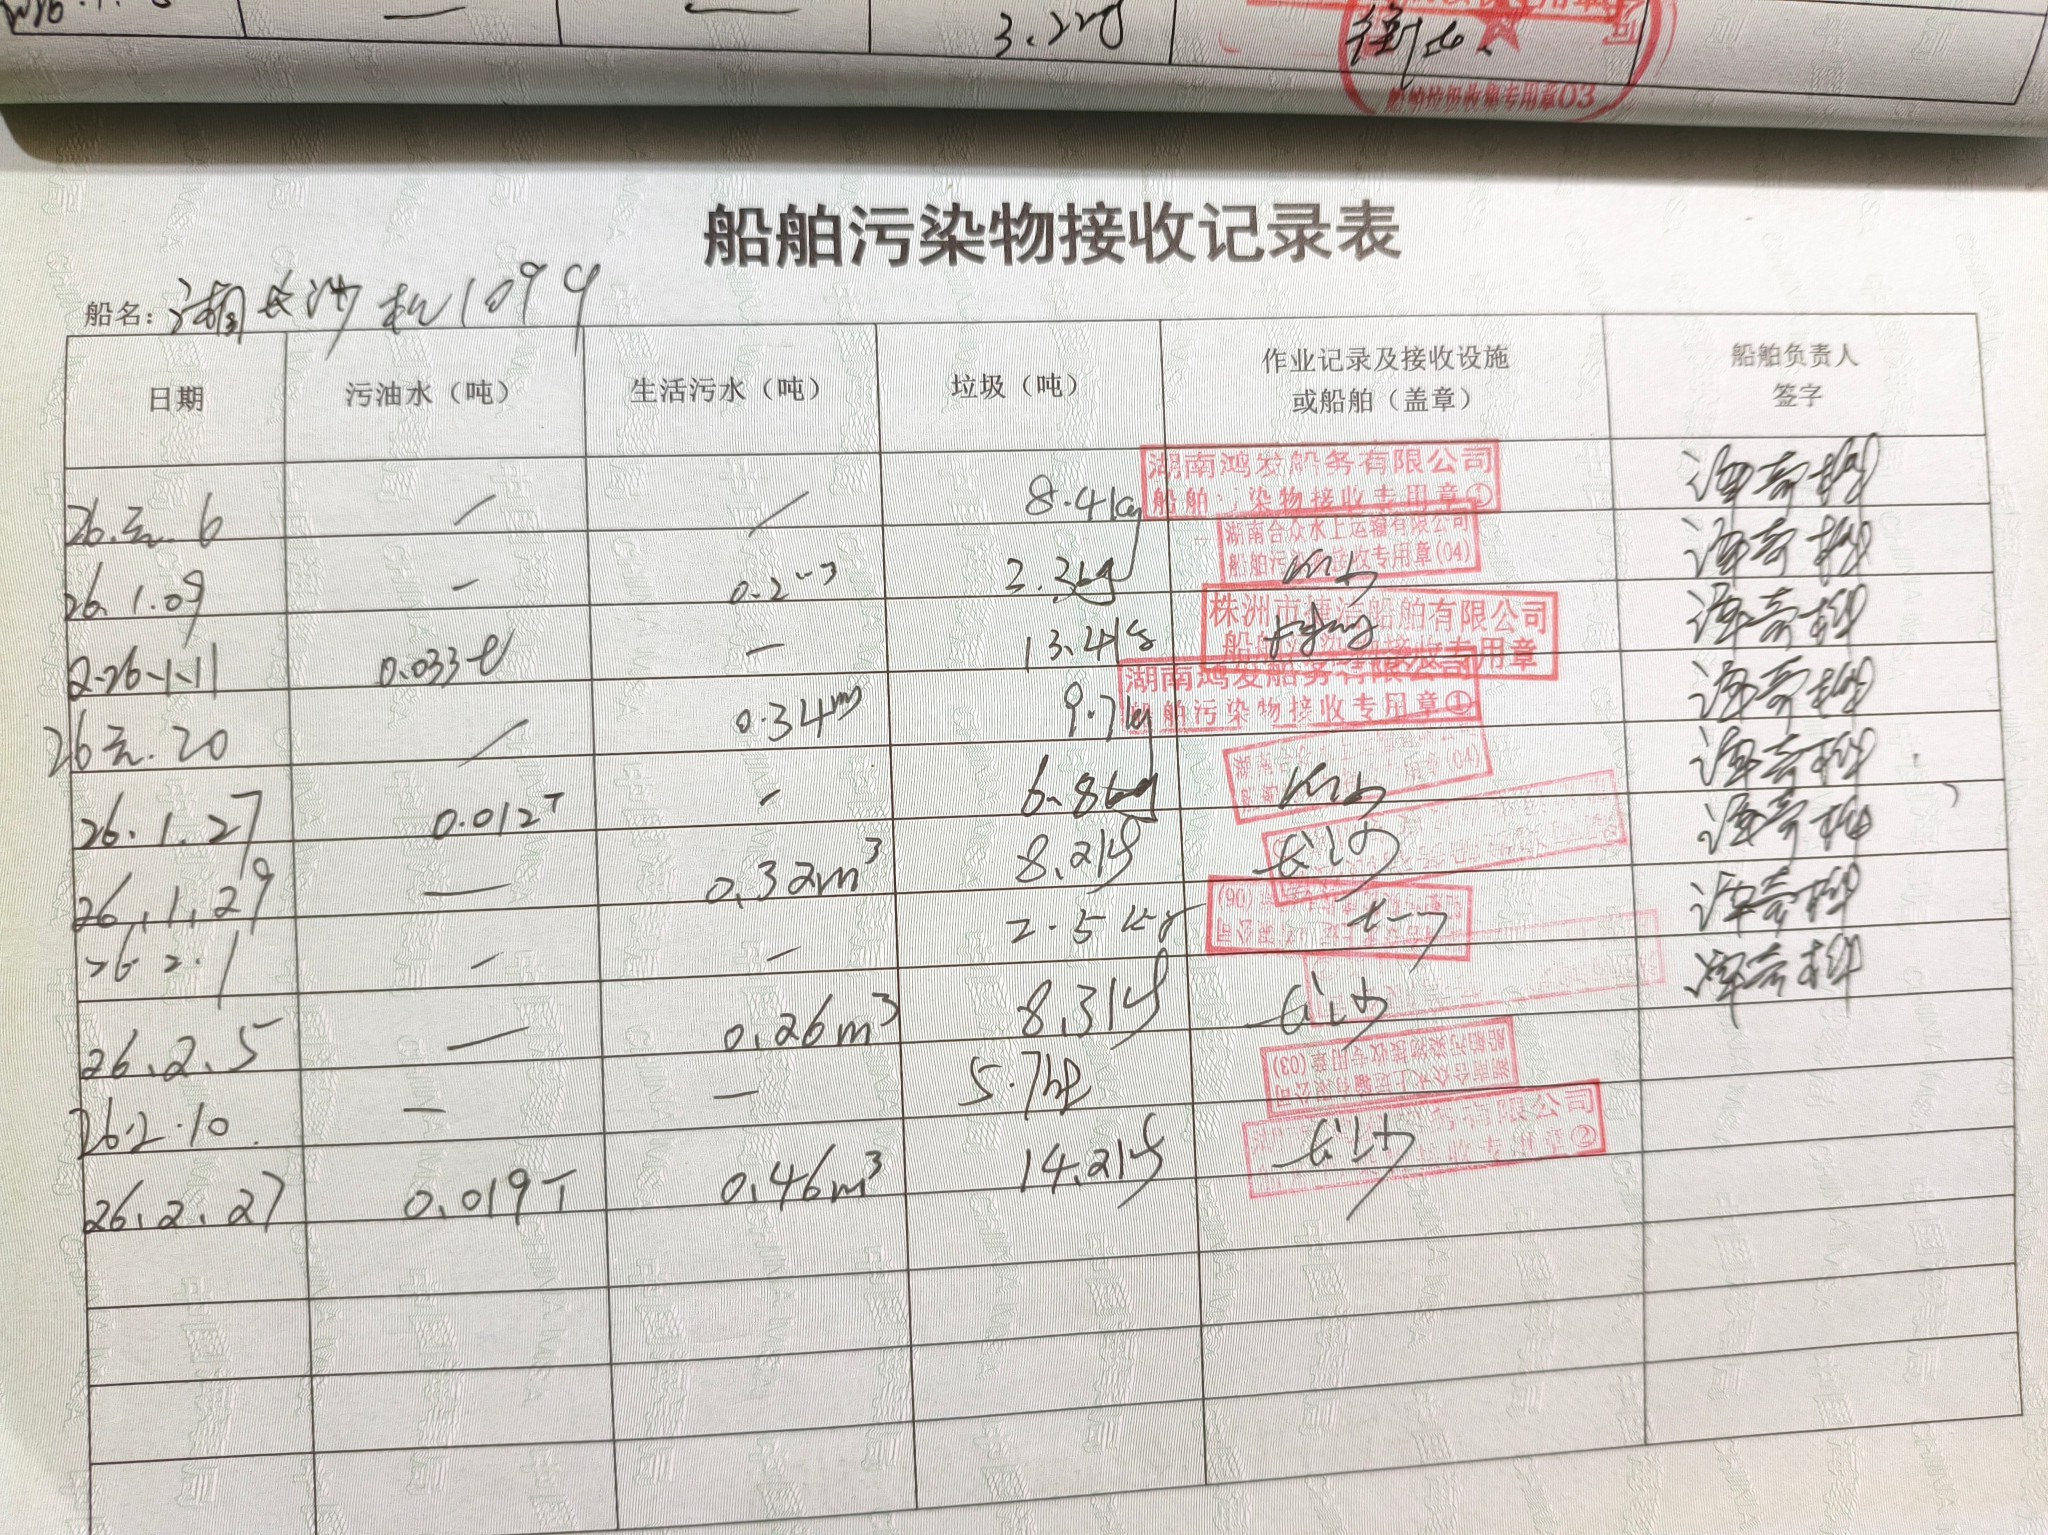 3.2kg 衡山
船舶垃圾收集专用章03
船舶污染物接收记录表
船名：湘长沙机1099
日期 污油水（吨） 生活污水（吨） 垃圾（吨） 作业记录及接收设施或船舶（盖章） 船舶负责人签字
26.元.6 / / 8.4kg 湖南鸿发船务有限公司 船舶污染物接收专用章①
26.1.09 — 0.2m3 2.3kg 湖南合众水上运输有限公司 船舶污染物接收专用章(04)
2026.1.11 0.033t — 13.4kg 株洲市捷 船舶有限公司 船舶污染物接收专用章
26元.20 / 0.34m 9.7kg 湖南鸿发船务有限公司 船舶污染物接收专用章①
26.1.27 0.012T - 6.8kg (04)
26.1.29 — 0.32m³ 8.2kg 长沙
26.2.1 - - 2.5kg (06)
26.2.5 — 0.26m³ 8.3kg 长沙
26.2.10. — — 5.7kg 湖南合众水上运输有限公司 船舶污染物接收专用章(03)
26.2.27 0.019T 0.46m³ 14.2kg 长沙 务有限公司 接收专用章②